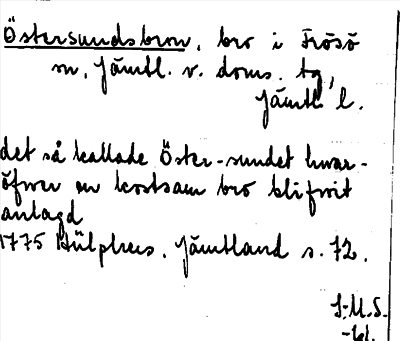 Östersundsbron, bro i Frösö
sn, Jämtl. v. doms. tg,
Jämtl. l.
det så kallade Öster-sundet hwar-
öfwer en kostsam bro blifwit
anlagd
1775 Hülphers, Jämtland s. 72.